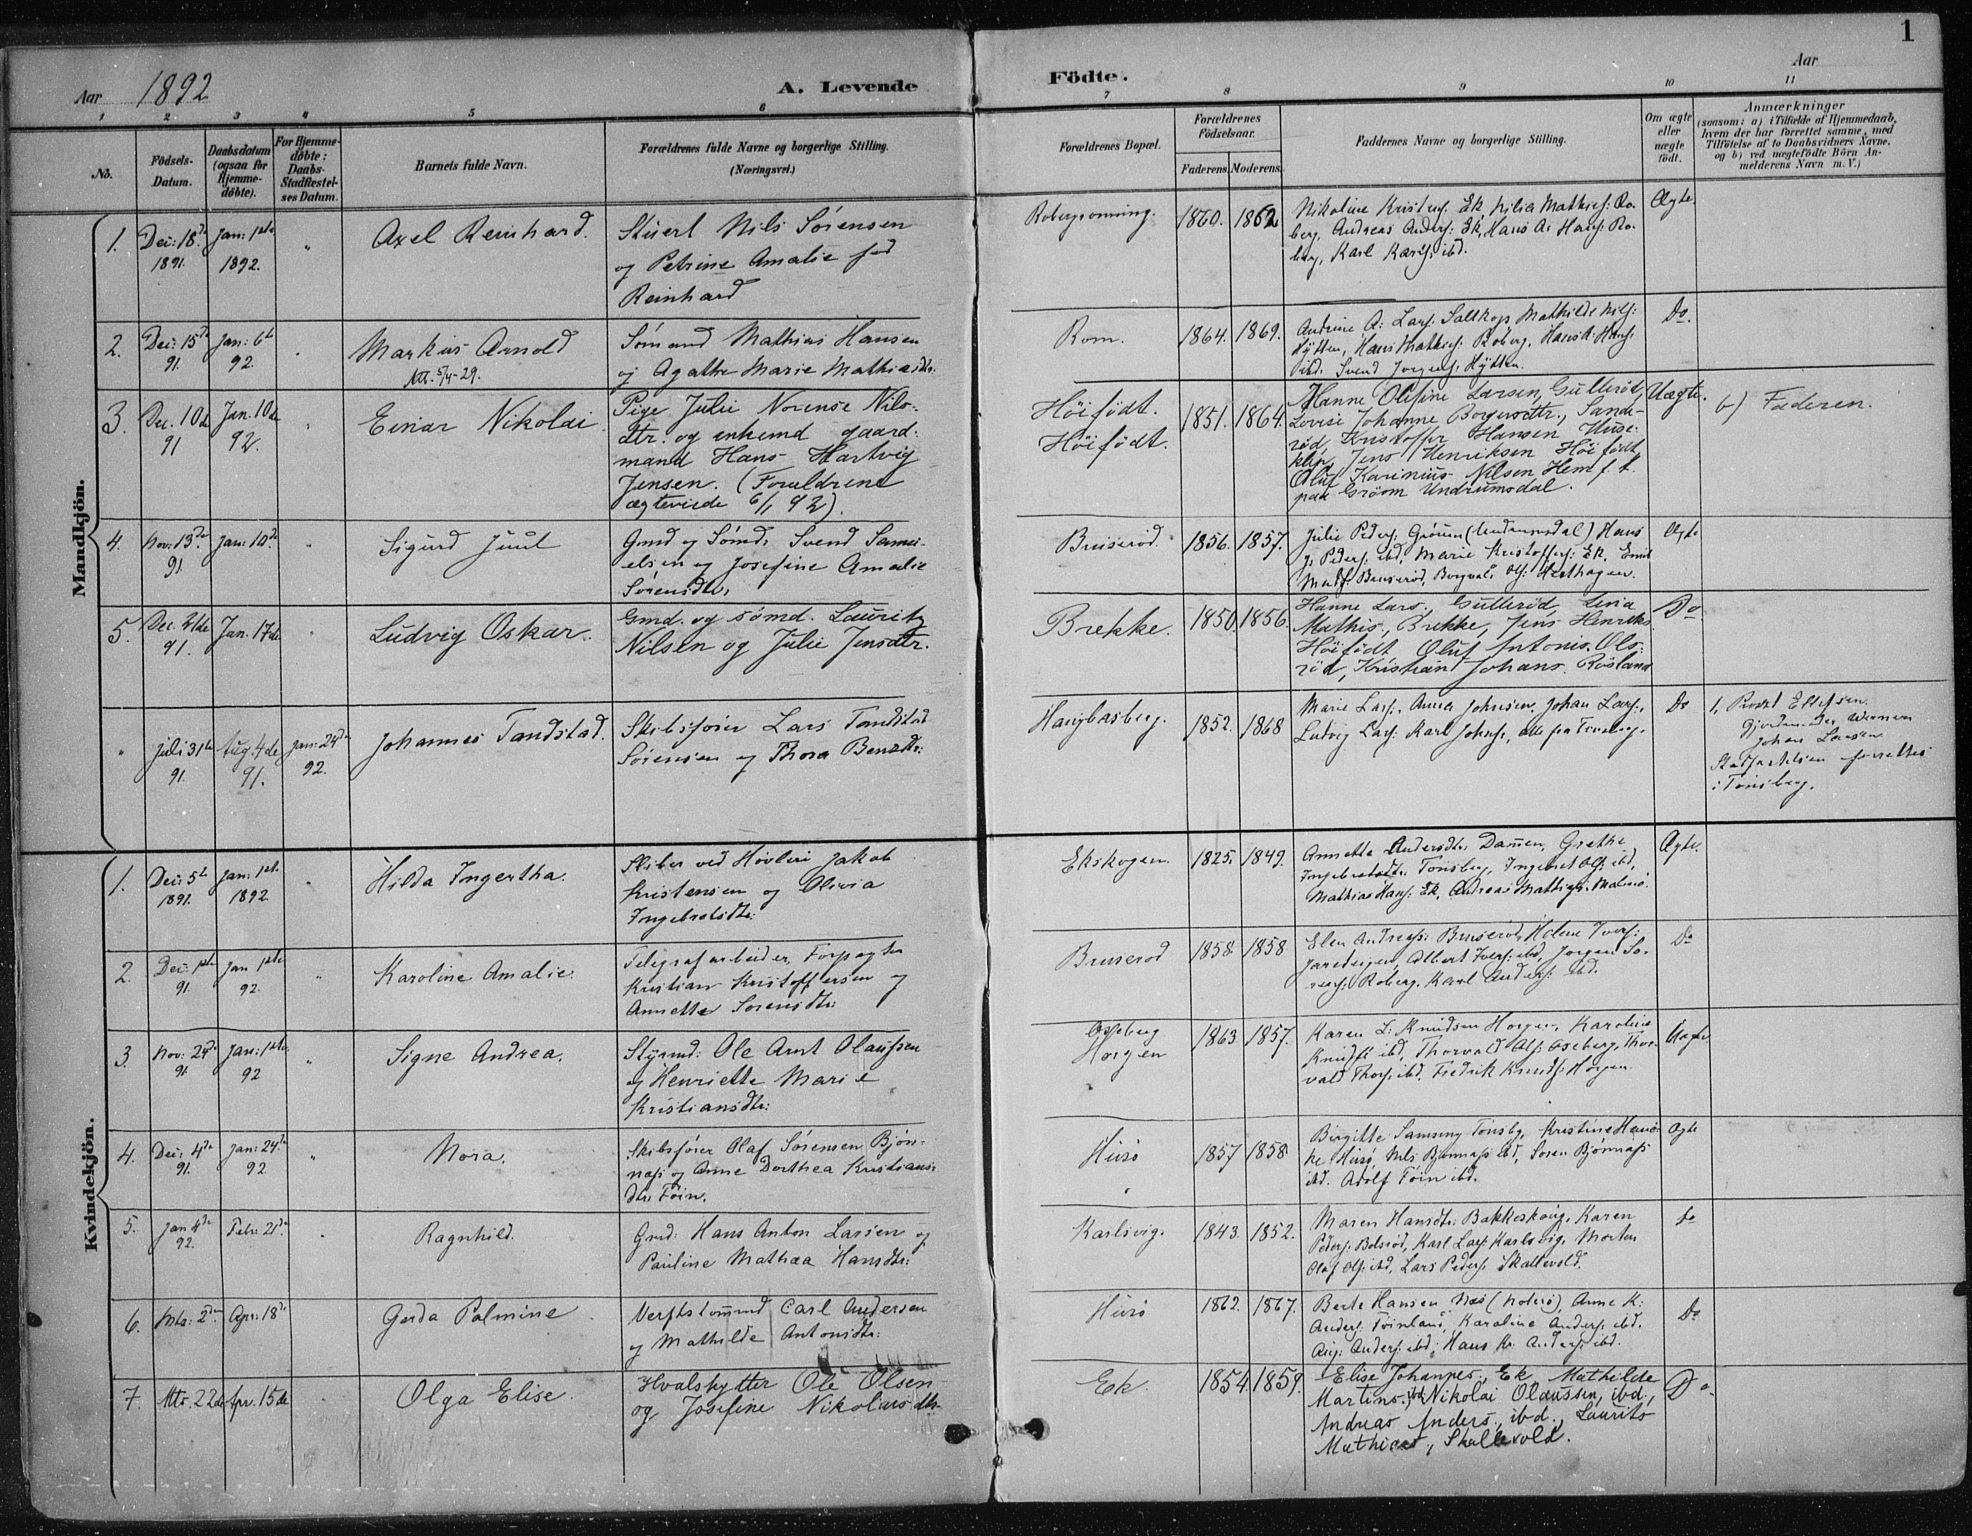 1
Aar 1892
A. Levende
Födte.
Aar
1 2 3 4 5 6 7 8 9 10 11
No.
Födsels-
Datum.
Daabsdatum
(ogsaa for
Hjemme-
døbte).
For Hjemme-
døbte:
Daabs-
Stadfæstel-
ses Datum.
Barnets fulde Navn.
Forældrenes fulde Navne og borgerlige Stilling.
(Næringsvei.)
Forældrenes Bopæl.
Forældrenes
Födselsaar.
Faderens. Moderens.
Faddernes Navne og borgerlige Stilling.
Om ægte
eller
uægte
födt.
Anmærkninger
(saasom: a) i Tilfælde af Hjemmedaab,
hvem der har forrettet samme, med
Tilföielse af to Daabsvidners Navne,
og b) ved uægtefödte Börn An-
melderens Navn m. V.)
Mandkjön.
1. Dec: 18de 1891. Jan: 1ste 1892. " Axel Reinhard.
Nils Sørensen
og Petrine Amalie fød
Reinhard
1860. 1862
Nikoline Kristens: Ek,
Andreas Anders: Ek, Hans A. Hans: Ro-
berg, Karl Karls: ibd.
Ægte.
2. Dec: 15de 91. Jan: 6te 92. " Markus Arnold
Sømand Mathias Hansen
og Agathe Marie Mathiasdtr.
Rom. 1864. 1869.
Andrine A: Lars: Mathilde Nils:
Hytten, Hans Mathias: Roberg, Hans A. Hans:
ibd. Svend Jørgens: Hytten.
Do.
3. Dec. 10de 91 Jan. 10de 92. " Einar Nikolai.
Pige Julie Norense Nils-
dtr. og enkemd gaard-
mand Hans Hartvig
Jensen. (Forældrene
ægteviede 6/1 92).
Høifødt.
Høifødt.
1851. 1864.
Hanne Olefine Larsen, Gullerød,
Lovise Johanne Borgersdtr., Sande-
rød, Kristoffer Hansen Huse-
klep, Jens Henriksen Høifødt
Oluf Karinius Nilsen Hem f. t.
paa Grøom Undrumsdal.
Uægte.
b) Faderen.
4. Nov: 13de 91 Jan: 10de " Sigurd Juul
Gmd og Sømd: Svend Samu-
elsen og Josefine Amalie
Sørensdtr.
Bruserød. 1856. 1857.
Julie Peders: Grøum (Undrumsdal) Hans
P. Peders: ibd, Marie Kristoffers: Ek. Emil
Math: Bruserød, Ols: Hesthagen.
Ægte
5. Dec. 21de 91. Jan. 17de " Ludvig Oskar.
Gmd. og sømd. Lauritz
Nilsen og Julie Jensdtr.
Brekke. 1850. 1856.
Hanne Lars., Gullerød, Lina
Mathis., Brekke, Jens Henriks
Høifødt Oluf Antonis. Ols-
rød, Kristian Johans. Røsland
Do
" Juli 31te 91. Aug. 4de 91. Jan: 24de 92. Johannes Tandstad.
Skibsfører Lars Tandstad
Sørensen og Thora Bensdtr:
Haugbasberg. 1852. 1868
Marie Lars:, Anna Johnsen, Johan Lars:,
Ludvig Lars: Karl Johns:, alle fra Tønsberg.
Do
Ellefsen
Johan Larsen
forrettes
i Tønsberg.
Kvindekjön.
1. Dec: 5te 1891. Jan: 1ste 1892 " Hilda Ingertha.
Sliber ved Høvleri Jakob
Kristensen og Olivia
Ingebretsdtr:
Ekskogen. 1825. 1849.
Annette Andersdtr: Damen, Grethe
Ingebretsdtr: Tønsberg, Ingebret Ols: ibd,
Mathias Hans: Ek, Andreas Mathias: Malmø.
Ægte.
2. Dec: 1ste 91. Jan 1ste 92. " Karoline Amalie.
Telegrafarbeider, Forpagter
Kristian Kristoffersen og
Annette Sørensdtr:
Bruserød 1858. 1858
Elen Andreas: Bruserød, Helene Ivers:
Albert Ivers: ibd, Jørgen Sø-
rens: Roberg, Karl Anders: ibd.
Do
3 Nov: 24de 91. Jan: 1ste 92 " Signe Andrea.
Styrmd: Ole Arnt Olaussen
og Henriette Marie
Kristiansdtr:
Oseberg
Horgen
1863 1857.
Karen L: Knudsen Horgen, Karoline
Knuds: ibd, Thorvald Ols: Oseberg, Thor-
vald Thors: ibd. Fredrik Knuds: Horgen.
Uægte
4. Dec: 4de 91. Jan: 24de 92 " Nora.
Skibsfører Olaf Sørensen Bjøn-
næs og Anne Dorthea Kristians-
dtr: Føin.
Husø 1857 1858
Birgitte Samsing Tønsbg, Kristine
Husø, Nils Bjønnæs ibd, Søren Bjønnæs
ibd. Adolf Føin ibd.
Ægte
5. Jan 4de 92. Febr: 21de " Ragnhild.
Gmd: Hans Anton Larsen og
Pauline Mathea Hansdtr:
Karlsvig. 1843. 1852.
Maren Hansdtr: Bakkeskoug, Karen
Peders: Bolsrød, Karl Lars: Karlsvig, Morten
Olaf Ols: ibd, Lars Peders: Skallevold.
Do
6. Mts: 2den Apr: 18de Gerda Palmine
Verftstømmd Carl Andersen
og Mathilde Antonsdtr:
Husø 1862. 1867.
Berte Hansen Næs (Nøterø), Anne K:
Anders: Føinland, Karoline Anders: ibd.
Aug: Anders: ibd, Hans Kr. Anders: ibd.
Do
7. Mts. 22de Apr. 15de Olga Elise.
Hvalskytter Ole Olsen
og Josefine Nikolaisdtr.
Ek. 1854. 1859.
Elise Johannes., Ek Mathilde
Martins. ibd Nikolai Olaussen, ibd,
Andreas Anders., ibd., Laurits
Mathias., Skallevold.
Do.